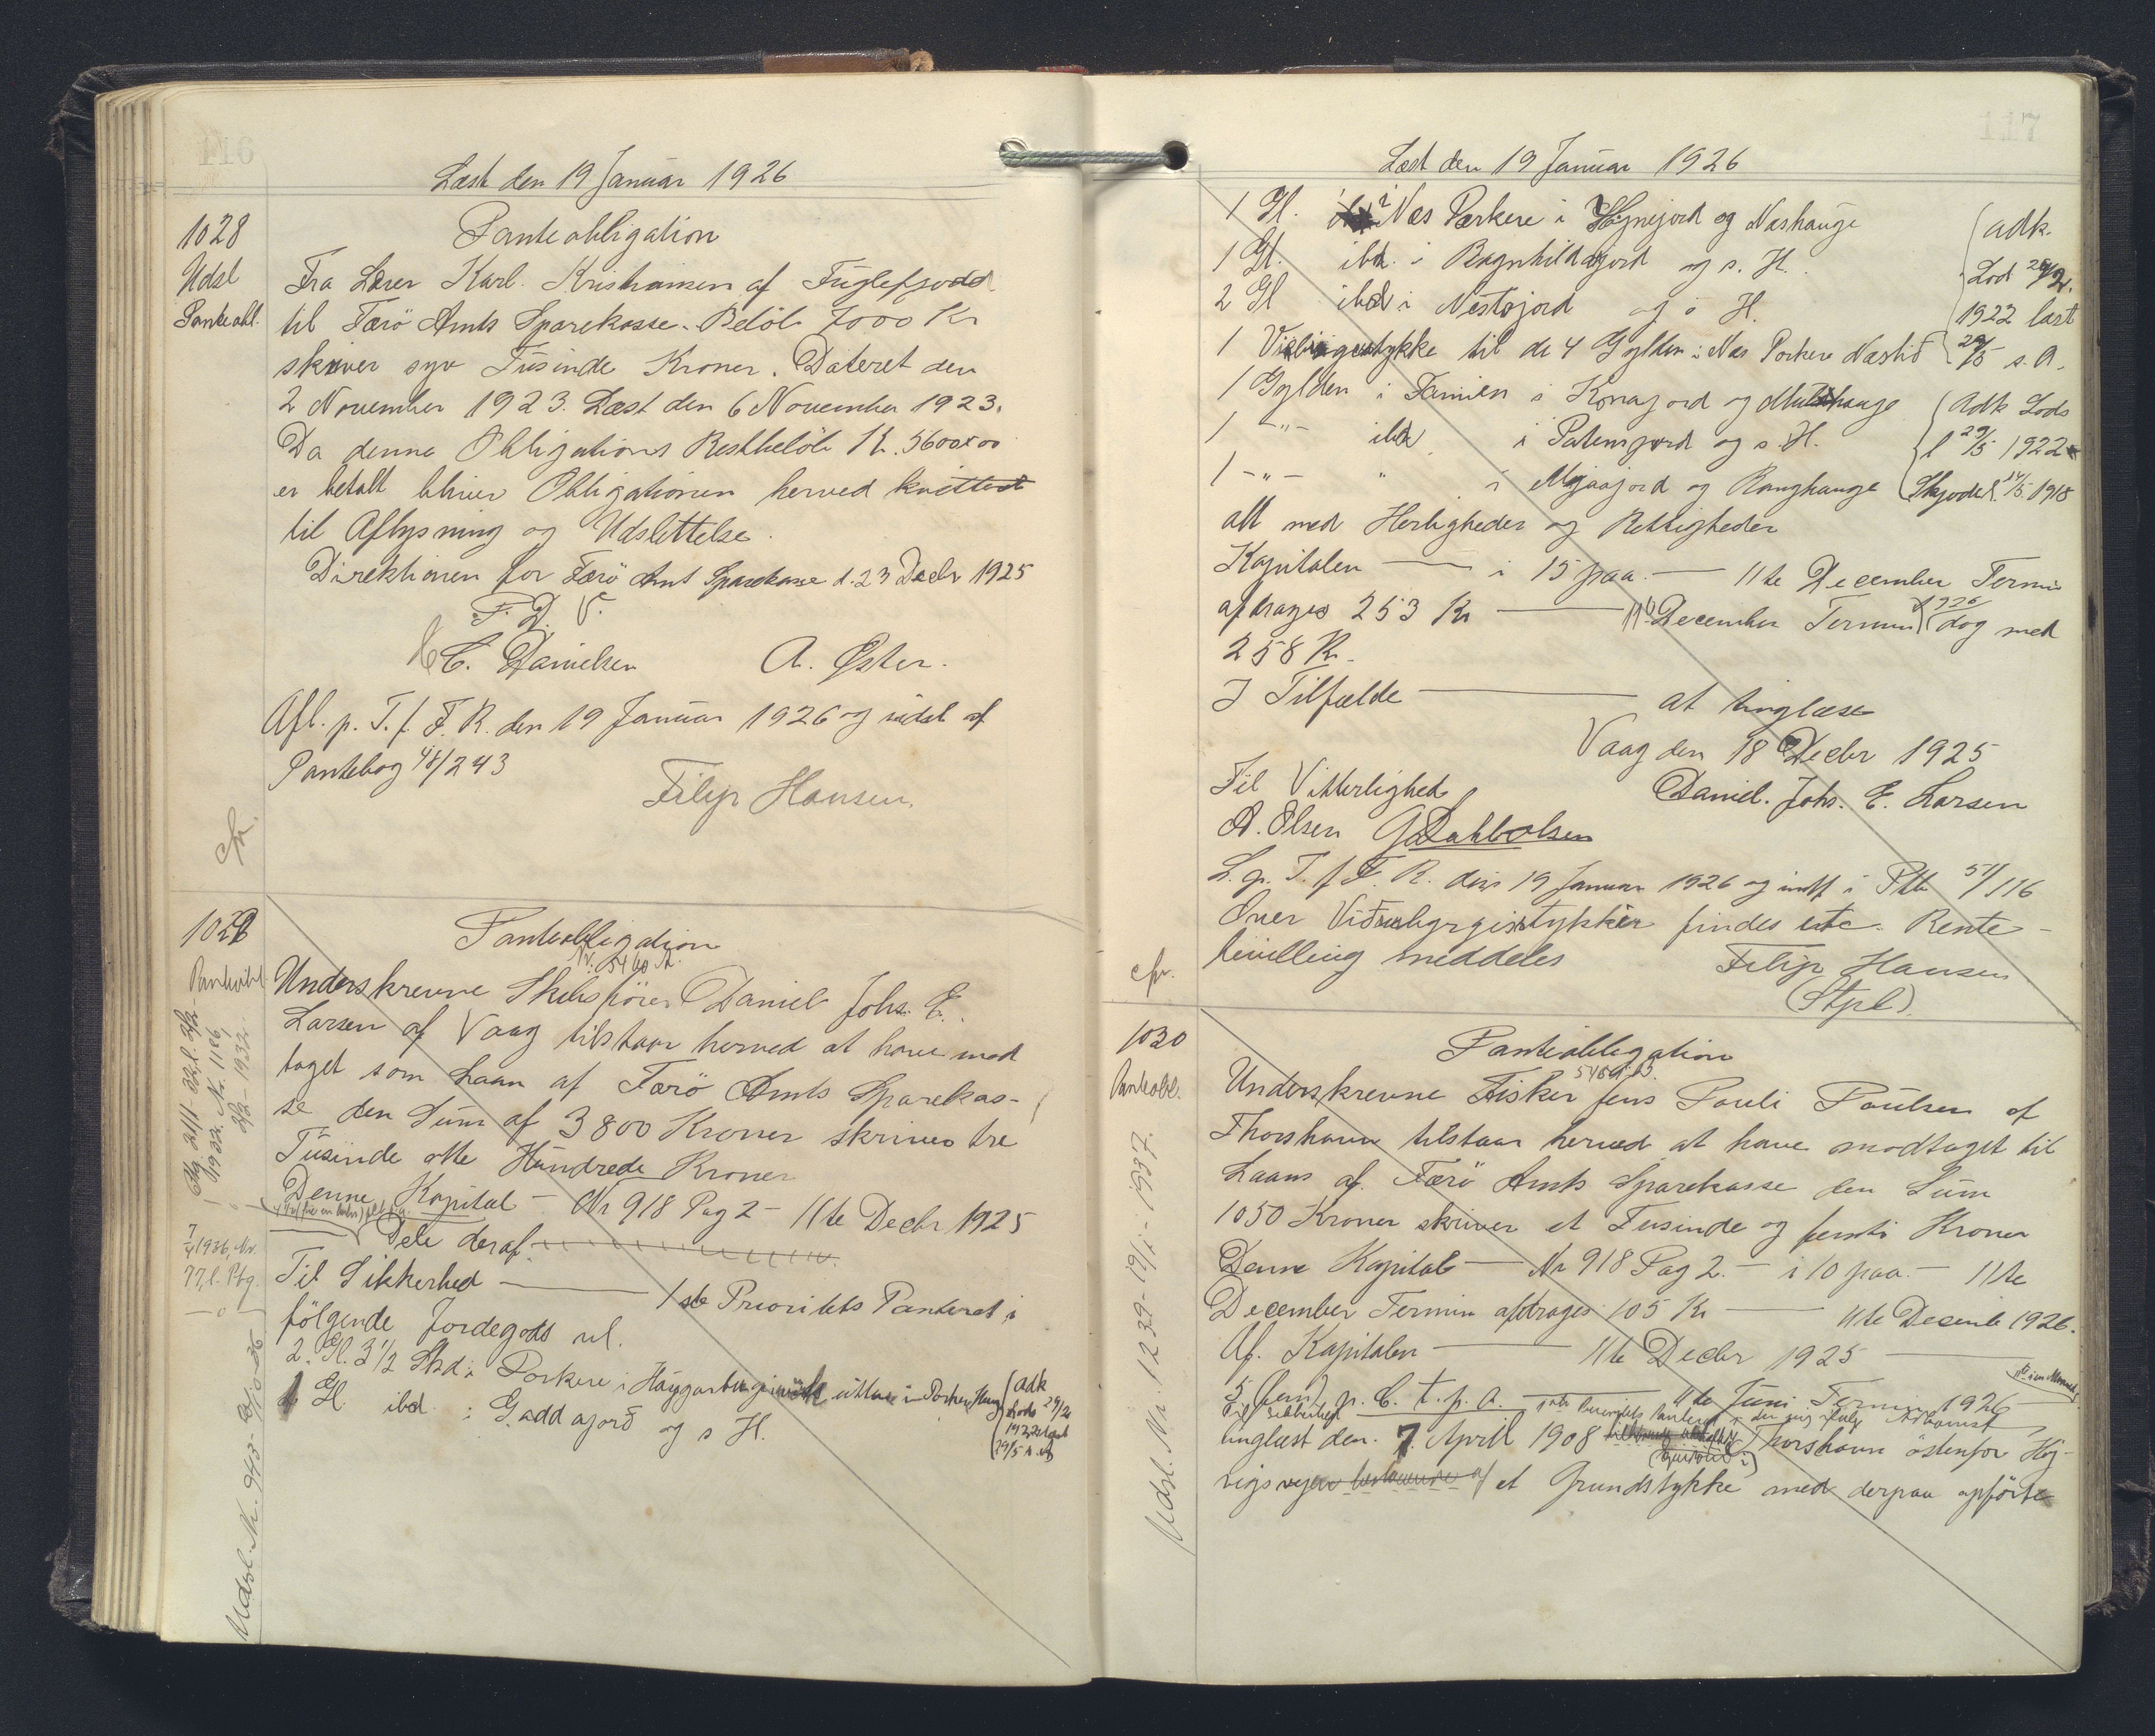 Læst den 19 Januar 1926
1028
Udsl
Panteobl.
Panteobligation
Fra Lærer Karl. Kristiansen af Fuglefjord
til Færö Amts Sparekasse. Belöb 7000 Kr
skriver syv Tusinde Kroner. Dateret den
2 November 1923. Læst den 6 November 1923.
Da denne Obligations Restbelöb Kr. 5600x00
er betalt bliver Obligationen herved kvitteret
til Aflysning og Udslettelse.
Direktionen for Færö Amt Sparekasse d. 23 Decbr 1925
F. D. V.
H C. Danielsen A. Øster.
Afl. p. T. f. F. R. den 19 Januar 1926 og udsl af
Pantebog 48/243
Filip Hansen.
cfr.
1029
Panteobl.
Panteobligation
Nr. 5460 A.
Underskrevne Skibsförer Daniel Johs. E.
Larsen af Vaag tilstaar herved at have mod
taget som Laan af Færö Amts Sparekas-
se den Sum af 3800 Kroner skriver tre
Tusinde otte Hundrede Kroner
Denne Kapital - Nr 918 Pag 2 - 11te Decbr 1925
Dele deraf
Til Sikkerhed - 1ste Prioritets Panteret i
fölgende Jordegods nl.
2. Gl. 3 1/2 Skd i Porkere i
Gl. ibd. i Gaddajord og s H.
(adk
Lods 29/2
1922 læst
29/5 s. A.
7/4 1936, Nr.
77, l. Ptg.
Udsl. Nr. 943
Læst den 19 Januar 1926
1 Gl. i Næs Porkere i Högnejord og Næshauge
1 Gl. ibd. i Ragnhildajord og s. H.
2 Gl ibd i Nestojord og s H.
(adk.
Lod 29/2.
1922 læst
29/5 s. A.
1 til de 4 Gylden i Næs Porkere Næstid
1 Gylden i Famien i Konajord og
1 -"- ibd i Patensjord og s. H.
1 -"- " i Mjaajord og Ranghauge
(Adk Lods
l 29/5 1922
Skjode l. 14/5 1918
alt med Herligheder og Rettigheder
Kapitalen - i 15 paa. - 11te December Termin
afdrages 253 Kr - 11te December Termin 1926 (dog med
258 Kr.
I Tilfælde - at tinglæse
Vaag den 18 Decbr 1925
Til Vitterlighed Daniel. Johs. E. Larsen
A. Olsen G Dahl-Olsen
L. p. T. f F. R. den 19 Januar 1926 og indf i Ptb 51/116
Over findes etc. Rente-
bevilling meddeles
Filip Hansen
(Stpl).
cfr.
1030
Panteobl.
Panteobligation
Underskrevne Fisker Jens Pauli Poulsen af
Thorshavn tilstaar herved at have modtaget til
Laans af Færö Amts Sparekasse den Sum
1050 Kroner skriver et Tusinde og femti Kroner
Denne Kapital - Nr 918 Pag 2. - i 10 paa. - 11te
December Termin afdrages 105 Kr - 11te Decembr 1926.
Af. Kapitalen - 11te Decbr 1925 -
5 (fem) p. C. t. p. A. 11te Juni Termin 1926
Til Sikkerhed 1ste Prioritets Panteret i den mig ifölge Adkomst
tinglæst den. 7 April 1908 Thorshavn östenfor Höj-
vigsvejen et Grundstykke med derpaa opförte
Udsl. Nr. 1239 - 19/1 - 1937.